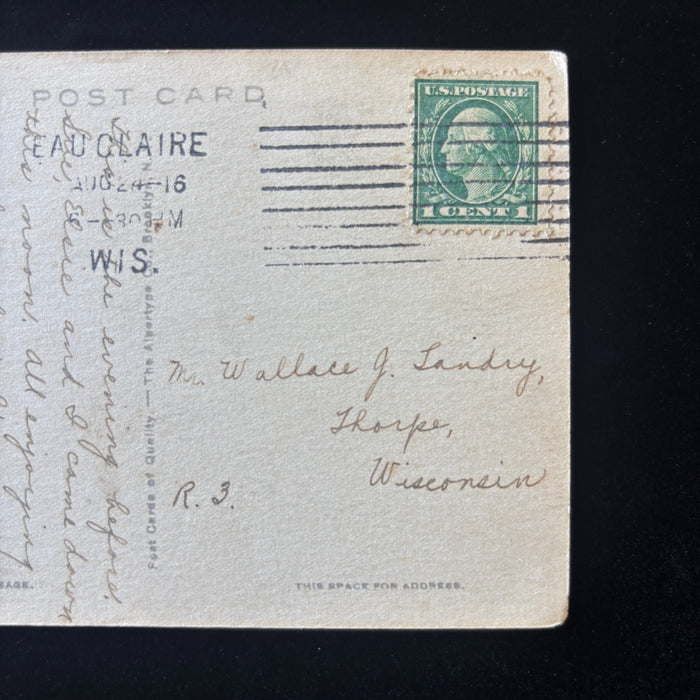 POST CARD
EAU CLAIRE
AUG 24-16
30 PM
WIS.
U.S. POSTAGE
1 CENT 1
Mr. Wallace J. Landry,
Thorpe,
Wisconsin
R. 3.
THIS SPACE FOR ADDRESS.
Post Cards of Quality. — The Albertype Co., Brooklyn, N.
the evening before.
Elsie and I came down
this noon. All enjoying